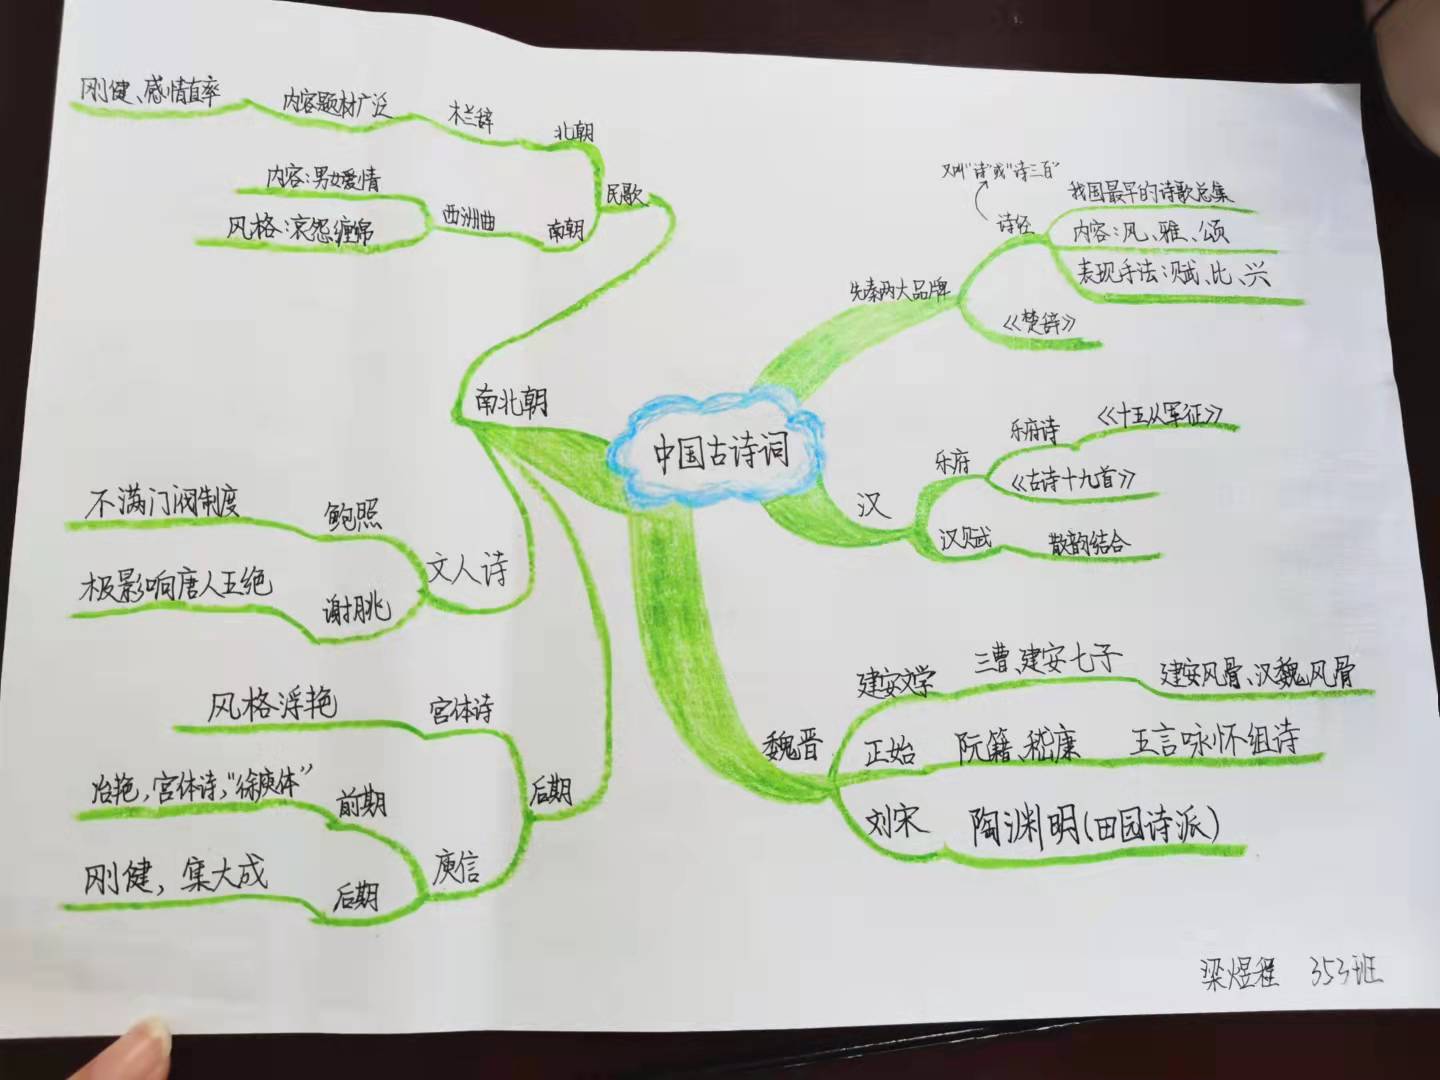 中国古诗词
先秦两大品牌
诗经
又叫“诗”或“诗三百”
我国最早的诗歌总集
内容:风、雅、颂
表现手法:赋、比、兴
《楚辞》
汉
乐府
乐府诗
《十五从军征》
《古诗十九首》
汉赋
散韵结合
魏晋
建安文学
三曹、建安七子
建安风骨、汉魏风骨
正始
阮籍、嵇康
五言咏怀组诗
刘宋
陶渊明(田园诗派)
南北朝
民歌
北朝
木兰辞
内容题材广泛
刚健、感情直率
南朝
西洲曲
内容:男女爱情
风格:哀怨缠绵
文人诗
鲍照
不满门阀制度
谢朓
极影响唐人五绝
后期
宫体诗
风格浮艳
庾信
前期
冶艳,宫体诗,“徐庾体”
后期
刚健,集大成
梁煜程 353班